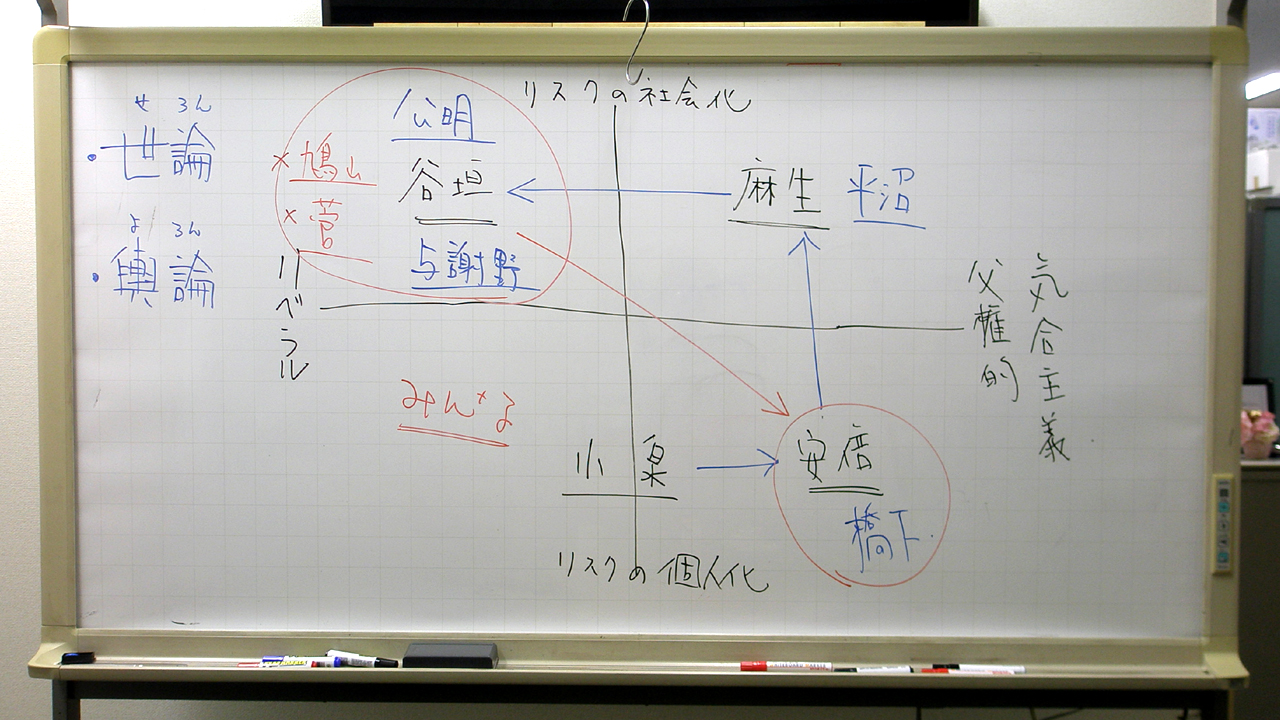 せ ろん
・世論
よ ろん
・輿論
リスクの社会化
公明
×鳩山
谷垣
×菅
与謝野
麻生 平沼
リベラル
父権的
気合主義
みんな
小泉
安倍
橋下
リスクの個人化